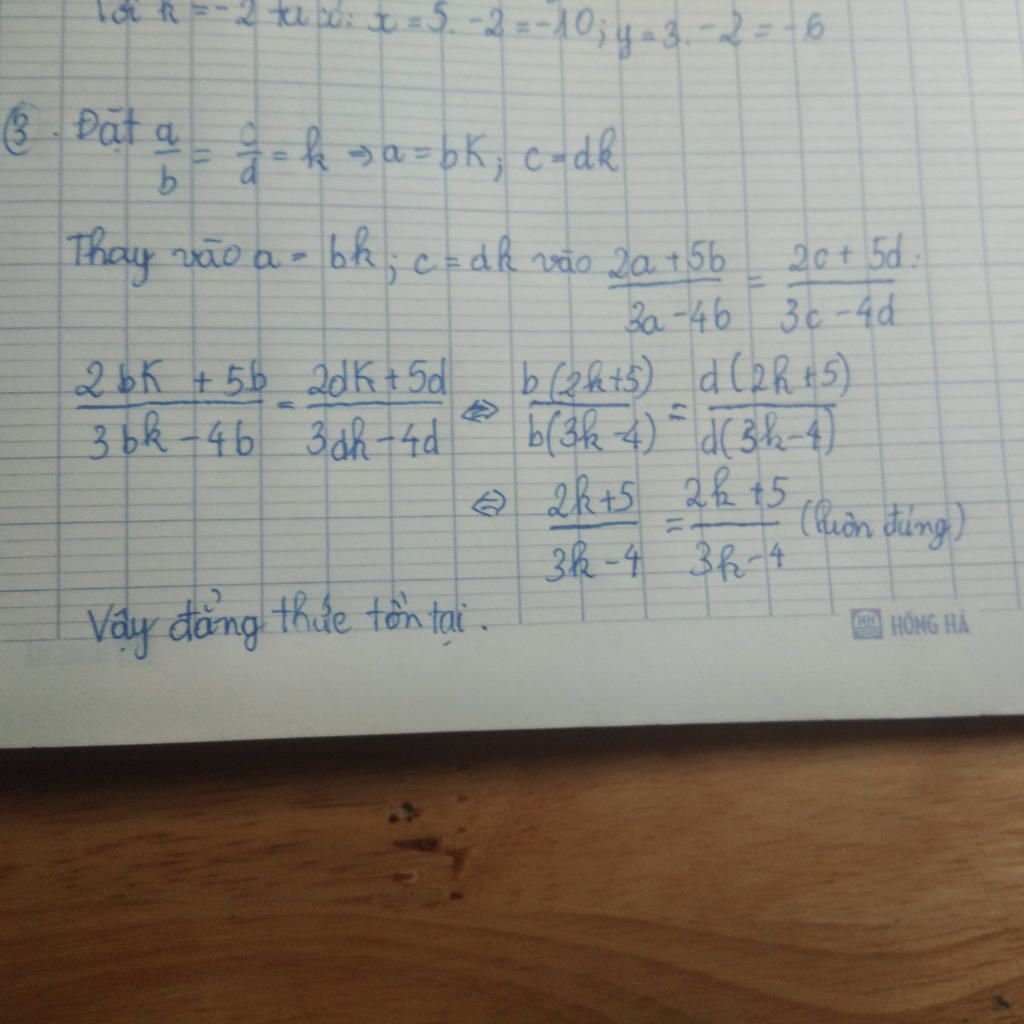 Với k = -2 ta có: x = 5. -2 = -10; y = 3. -2 = -6
3. Đặt a/b = c/d = k ⇒ a = bk; c = dk
Thay vào a = bk; c = dk vào (2a + 5b)/(3a - 4b) = (2c + 5d)/(3c - 4d):
(2bk + 5b)/(3bk - 4b) = (2dk + 5d)/(3dk - 4d) ⇔ b(2k+5)/b(3k-4) = d(2k+5)/d(3k-4)
⇔ (2k+5)/(3k-4) = (2k+5)/(3k-4) (luôn đúng)
Vậy đẳng thức tồn tại.
HỒNG HÀ